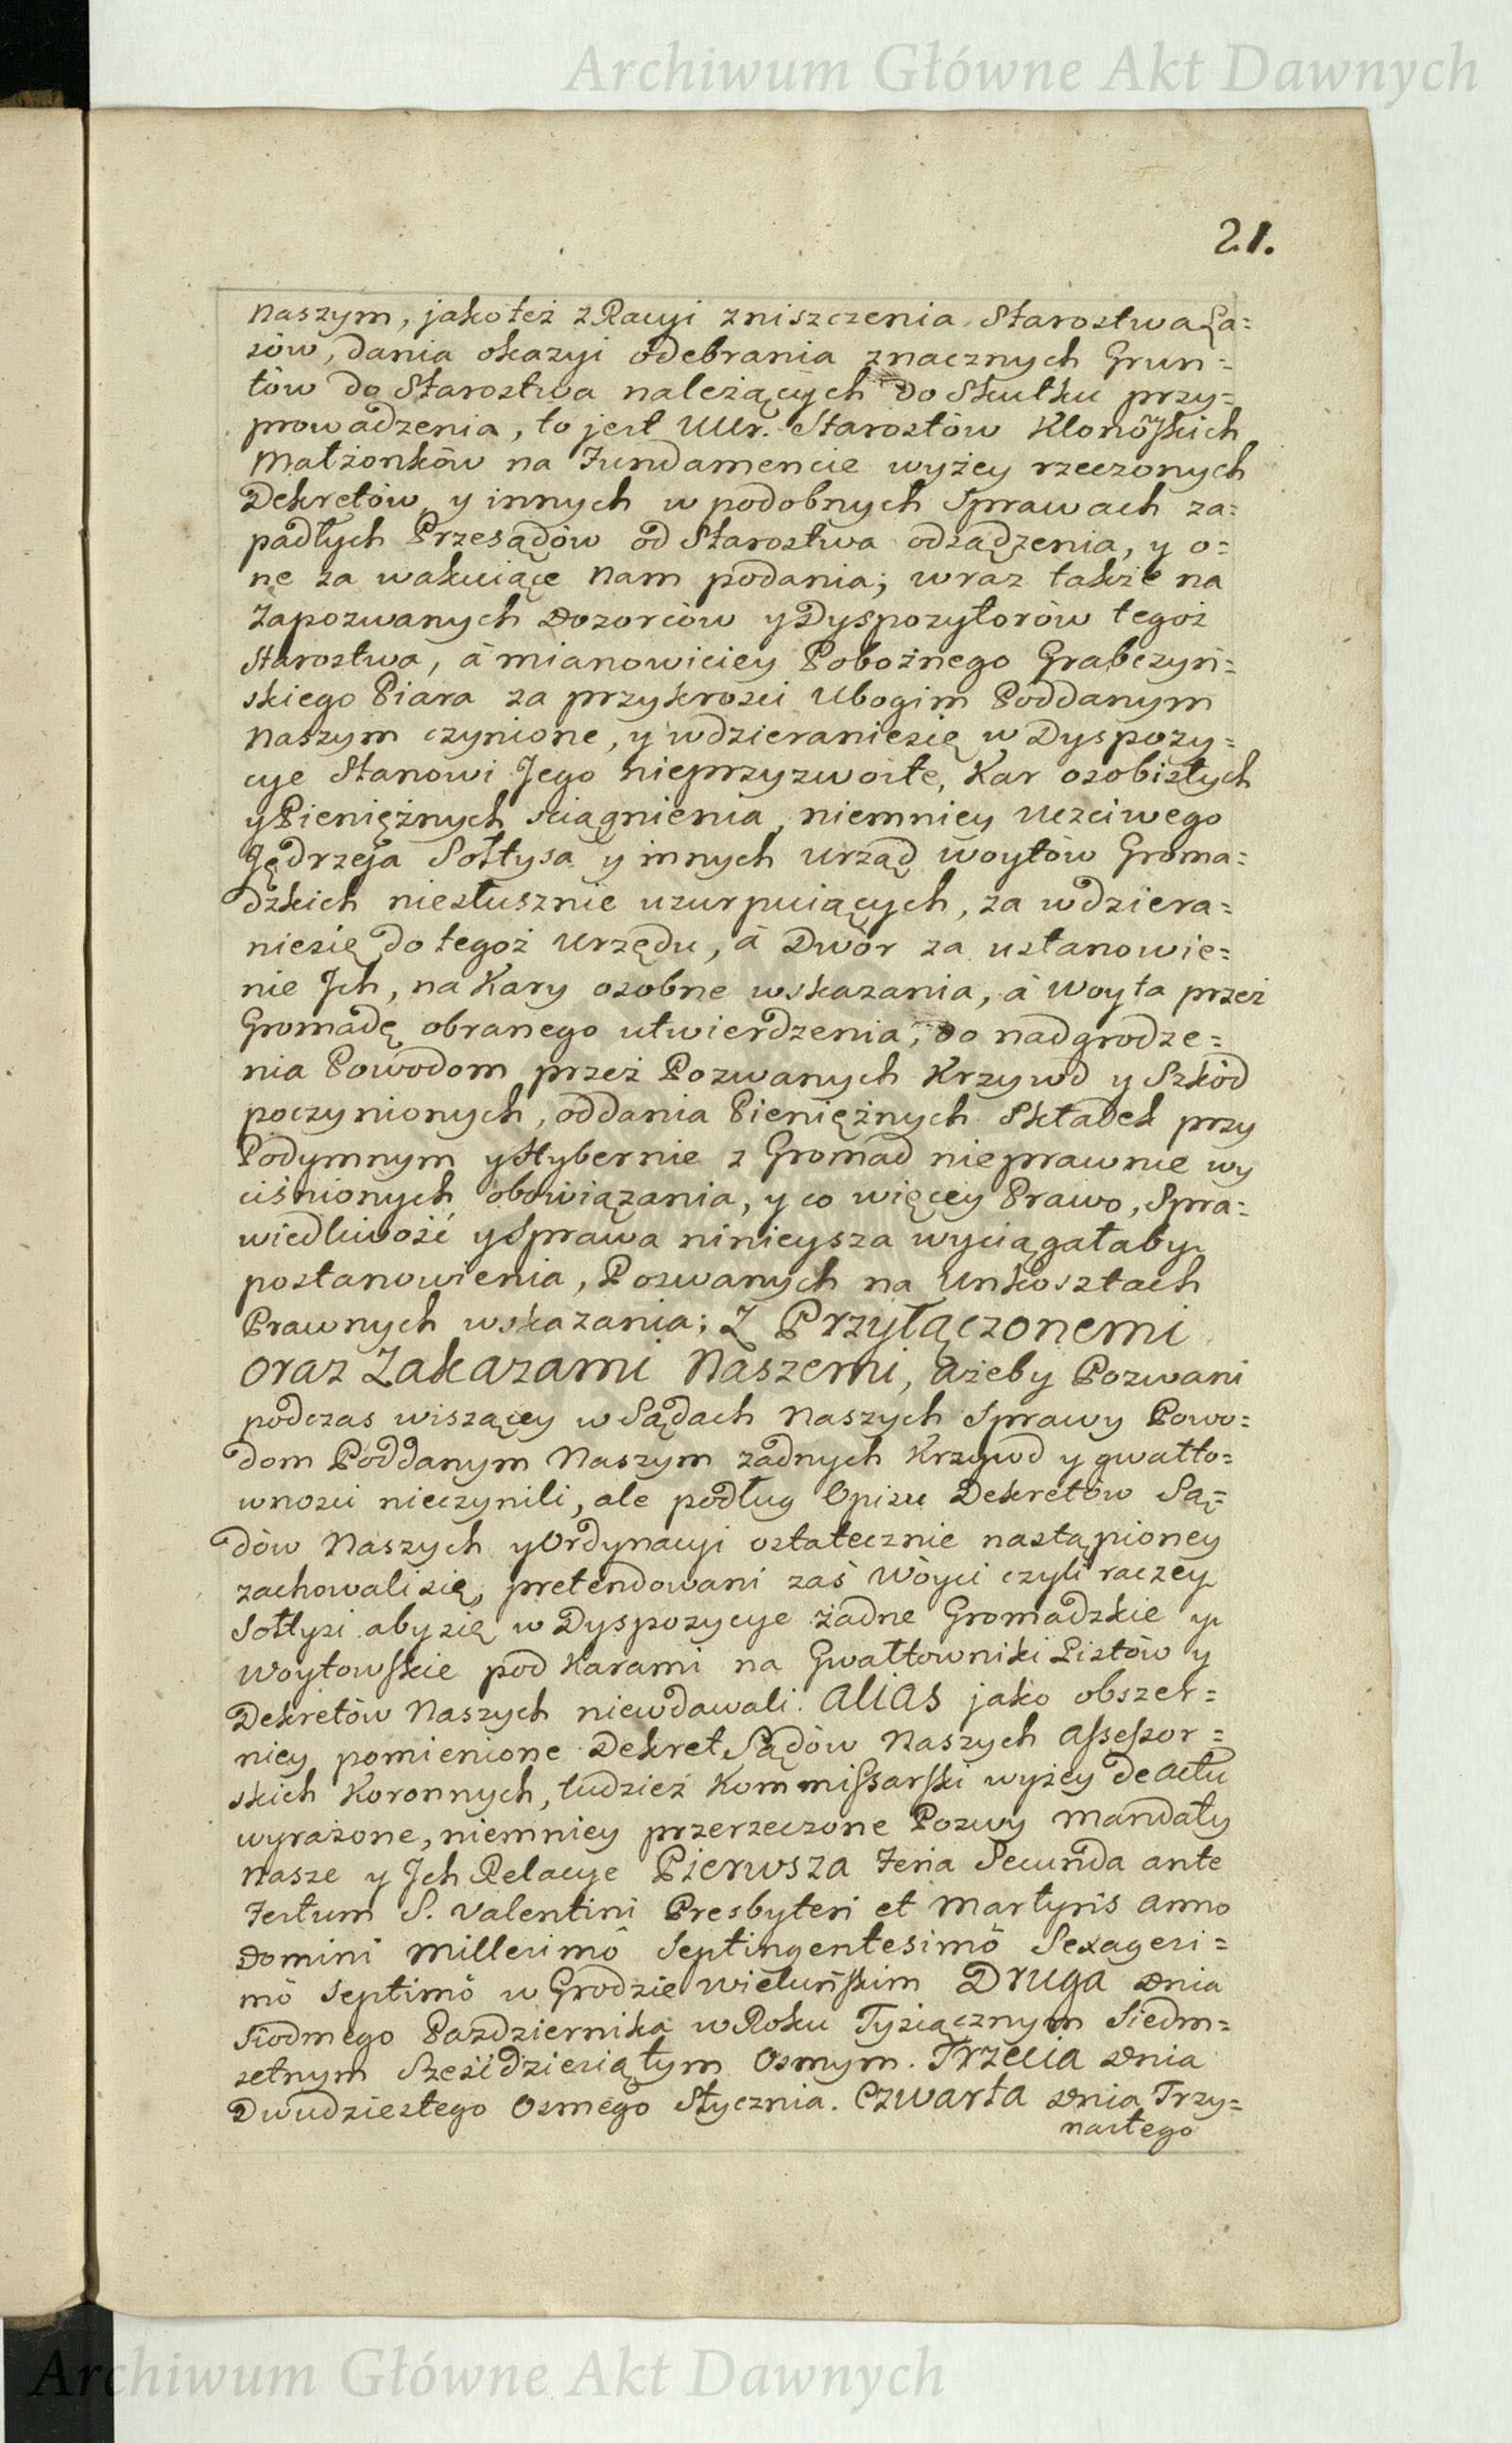 Archiwum Główne Akt Dawnych
21.
naszym, jako też z Racyi zniszczenia Starostwa La=
sów, dania okazyi odebrania znacznych Grun=
tów do Starostwa należących do Skutku przy=
prowadzenia, to jest UUr. Starostów Klonowskich
Małżonków na Fundamencie wyżey rzeczonych
Dekretów y innych w podobnych Sprawach za=
padłych Przesądów od Starostwa odsądzenia, y o=
ne za wakuiące Nam podania; wraz także na
Zapozwanych Dozorców y Dyspozytorów tegoż
Starostwa, á mianowiciey Pobożnego Grabczyń=
skiego Piara za przykrosci Ubogim Poddanym
Naszym czynione, y wdzieraniesię w Dyspozy=
cye Stanowi Jego nieprzyzwoite, Kar osobistych
y Pieniężnych sciągnienia, niemniey Uczciwego
Jędrzeja Sołtysa y innych Urząd Woytów Groma=
dzkich niesłusznie uzurpuiących, za wdziera=
niesię do tegoż Urzędu, á Dwór za ustanowie=
nie Jch, na Kary osobne wskazania, á Woyta przez
Gromadę obranego utwierdzenia, do nadgrodze=
nia Powodom przez Pozwanych Krzywd y Szkód
poczynionych, oddania Pieniężnych Składek przy
Podymnym y Hybernie z Gromad nieprawnie wy
ciśnionych obowiązania, y co więcey Prawo, Spra=
wiedliwość y Sprawa ninieysza wyciągałaby
postanowienia, Pozwanych na Unkosztach
Prawnych wskazania; Z Przyłączonemi
oraz Zakazami Naszemi, ażeby Pozwani
podczas wiszącey w Sądach Naszych Sprawy Powo=
dom Poddanym Naszym zadnych Krzywd y gwałto=
wnosci nieczynili, ale podług Opisu Dekretów Są=
dów Naszych y Ordynacyi ostatecznie nastąpioney
zachowali się, pretendowani zaś Wóyci czyli raczey
Sołtysi aby się w Dyspozycye żadne Gromadzkie y
Woytowskie pod Karami na Gwałtowniki Listów y
Dekretów Naszych niewdawali. Alias jako obszer=
niey pomienione Dekret Sądów Naszych Assessor=
skich Koronnych, tudzież Kommissarski wyżey de actu
wyrażone, niemniey przerzeczone Pozwy Mandaty
Nasze y Jch Relacye Pierwsza Feria Secunda ante
Festum S. Valentini Presbyteri et Martyris Anno
Domini Millesimô Septingentesimô Sexagesi=
mô Septimô w Grodzie Wieluńskim Druga Dnia
Siodmego Pazdziernika w Roku Tysiącznym Siedm=
setnym Sześćdziesiątym Osmym. Trzecia Dnia
Dwudziestego Osmego Stycznia. Czwarta Dnia Trzy=
nastego
Archiwum Główne Akt Dawnych